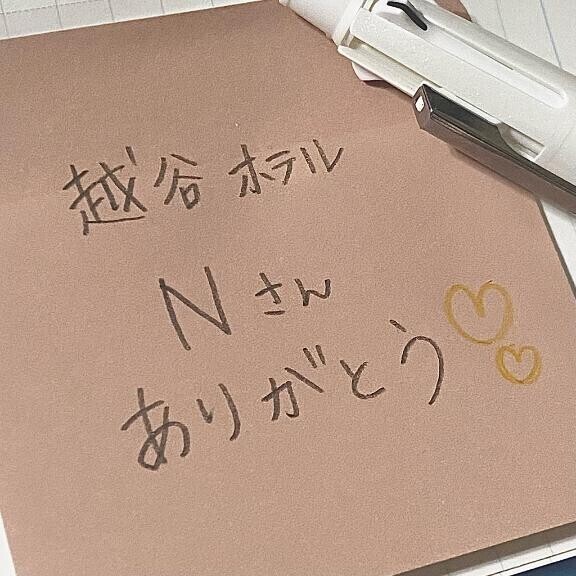 越谷 ホテル
Nさん
ありがとう♡♡